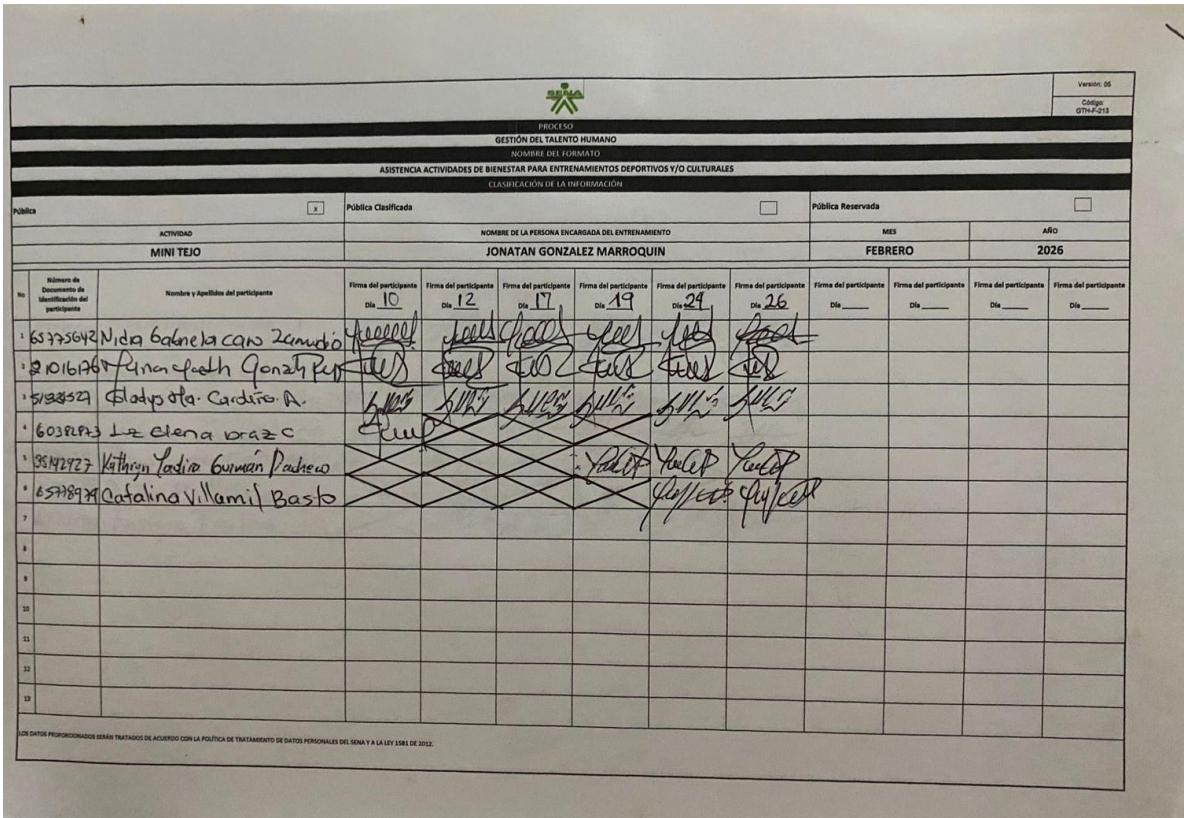 SENA
Versión: 05
Código:
GTH-F-213
PROCESO
GESTIÓN DEL TALENTO HUMANO
NOMBRE DEL FORMATO
ASISTENCIA ACTIVIDADES DE BIENESTAR PARA ENTRENAMIENTOS DEPORTIVOS Y/O CULTURALES
CLASIFICACIÓN DE LA INFORMACIÓN
Pública x Pública Clasificada Pública Reservada
ACTIVIDAD NOMBRE DE LA PERSONA ENCARGADA DEL ENTRENAMIENTO MES AÑO
MINI TEJO JONATAN GONZALEZ MARROQUIN FEBRERO 2026
No Número de Documento de Identificación del participante Nombre y Apellidos del participante Firma del participante Día 10 Firma del participante Día 12 Firma del participante Día 17 Firma del participante Día 19 Firma del participante Día 24 Firma del participante Día 26 Firma del participante Día____ Firma del participante Día____ Firma del participante Día____ Firma del participante Día____
1 65775642 Nidia Gabriela Caro Zamudio
2 21016176
3 Gladys Ma. Cardeño. A.
4 Luz Elena Diaz C
5 Kathryn Yadira Guzmán Pacheco
6 Catalina Villamil Basto
7
8
9
10
11
12
13
LOS DATOS PROPORCIONADOS SERÁN TRATADOS DE ACUERDO CON LA POLÍTICA DE TRATAMIENTO DE DATOS PERSONALES DEL SENA Y A LA LEY 1581 DE 2012.